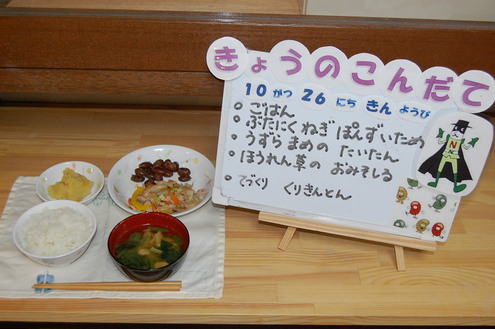 きょうのこんだて
10 がつ 26 にち きん ようび
○ ごはん
• ぶたにく ねぎ ぽんずいため
○ うすら まめの たいたん
• ほうれん草の おみそしる
• てづくり くりきんとん
N